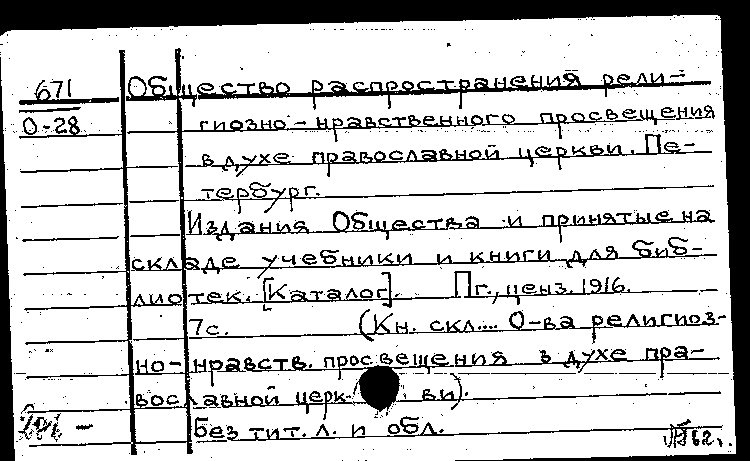 671 Общество распространения рели-
О-28 гиозно-нравственного просвещения
в духе православной церкви. Пе-
тербург.
Издания Общества и принятые на
складе учебники и книги для биб-
лиотек. [Каталог]. Пг., ценз. 1916.
7с. (Кн. скл.... О-ва религиоз-
но-нравств. просвещения в духе пра-
вославной церк ви).
Без тит. л. и обл.